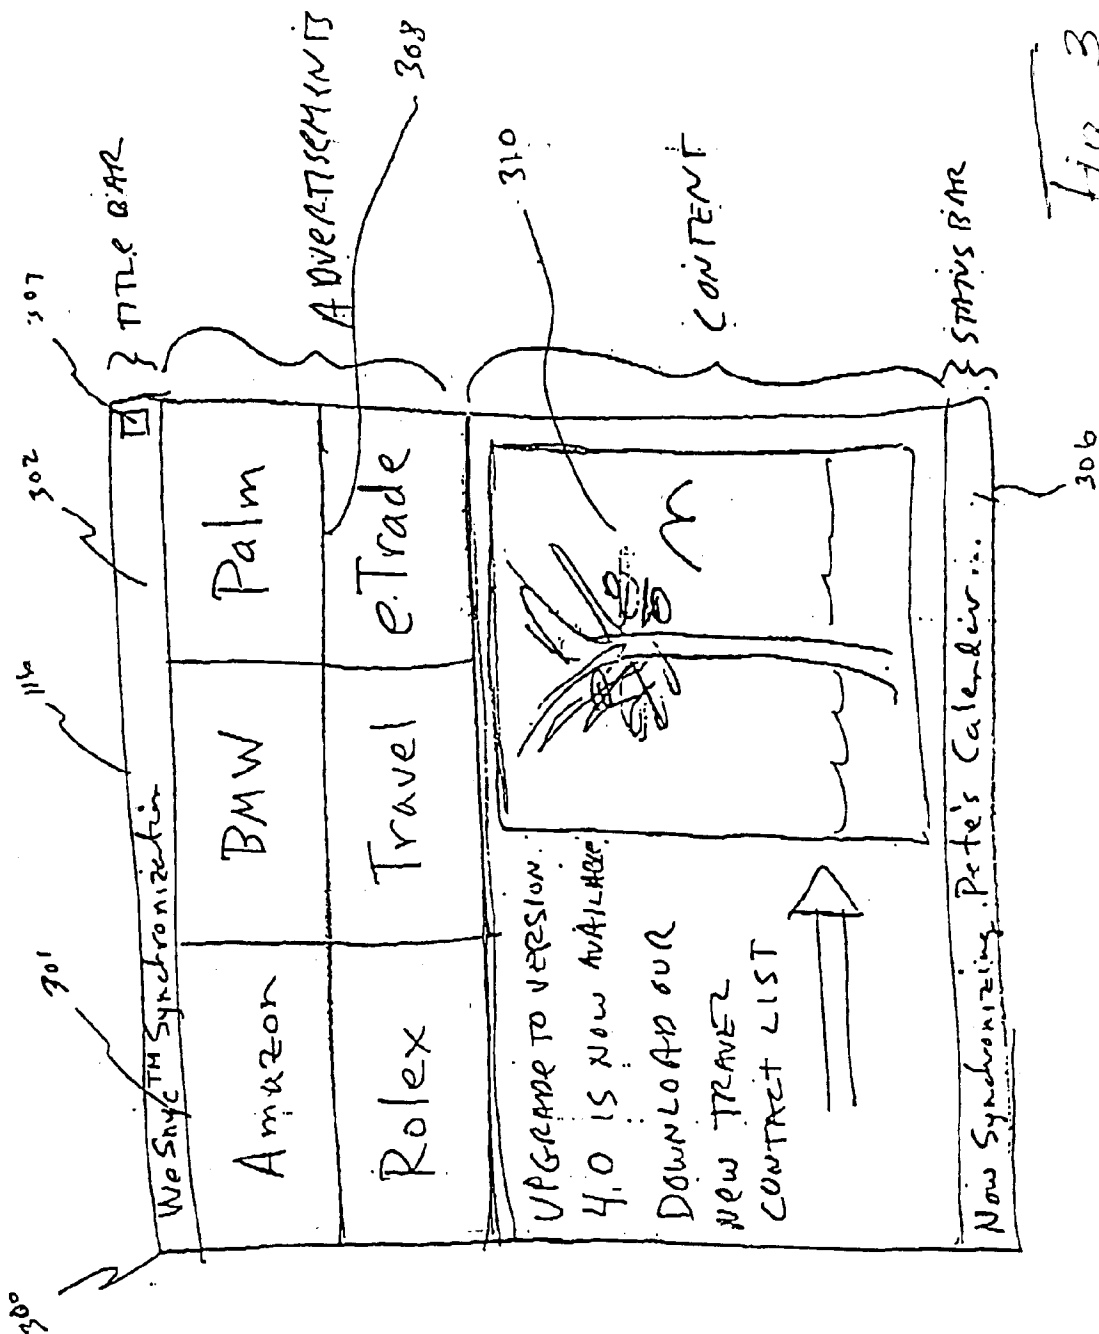 300
301
116
302
307
WeSnyc™ Synchronization
} TITLE BAR
Amazon BMW Palm
ADVERTISEMENTS
308
Rolex Travel e.Trade
UPGRADE TO VERSION
4.0 IS NOW AVAILABLE
DOWNLOAD OUR
NEW TRAVEL
CONTACT LIST
310
CONTENT
Now Synchronizing. Pete's Calendar...
} STATUS BAR
306
Fig 3